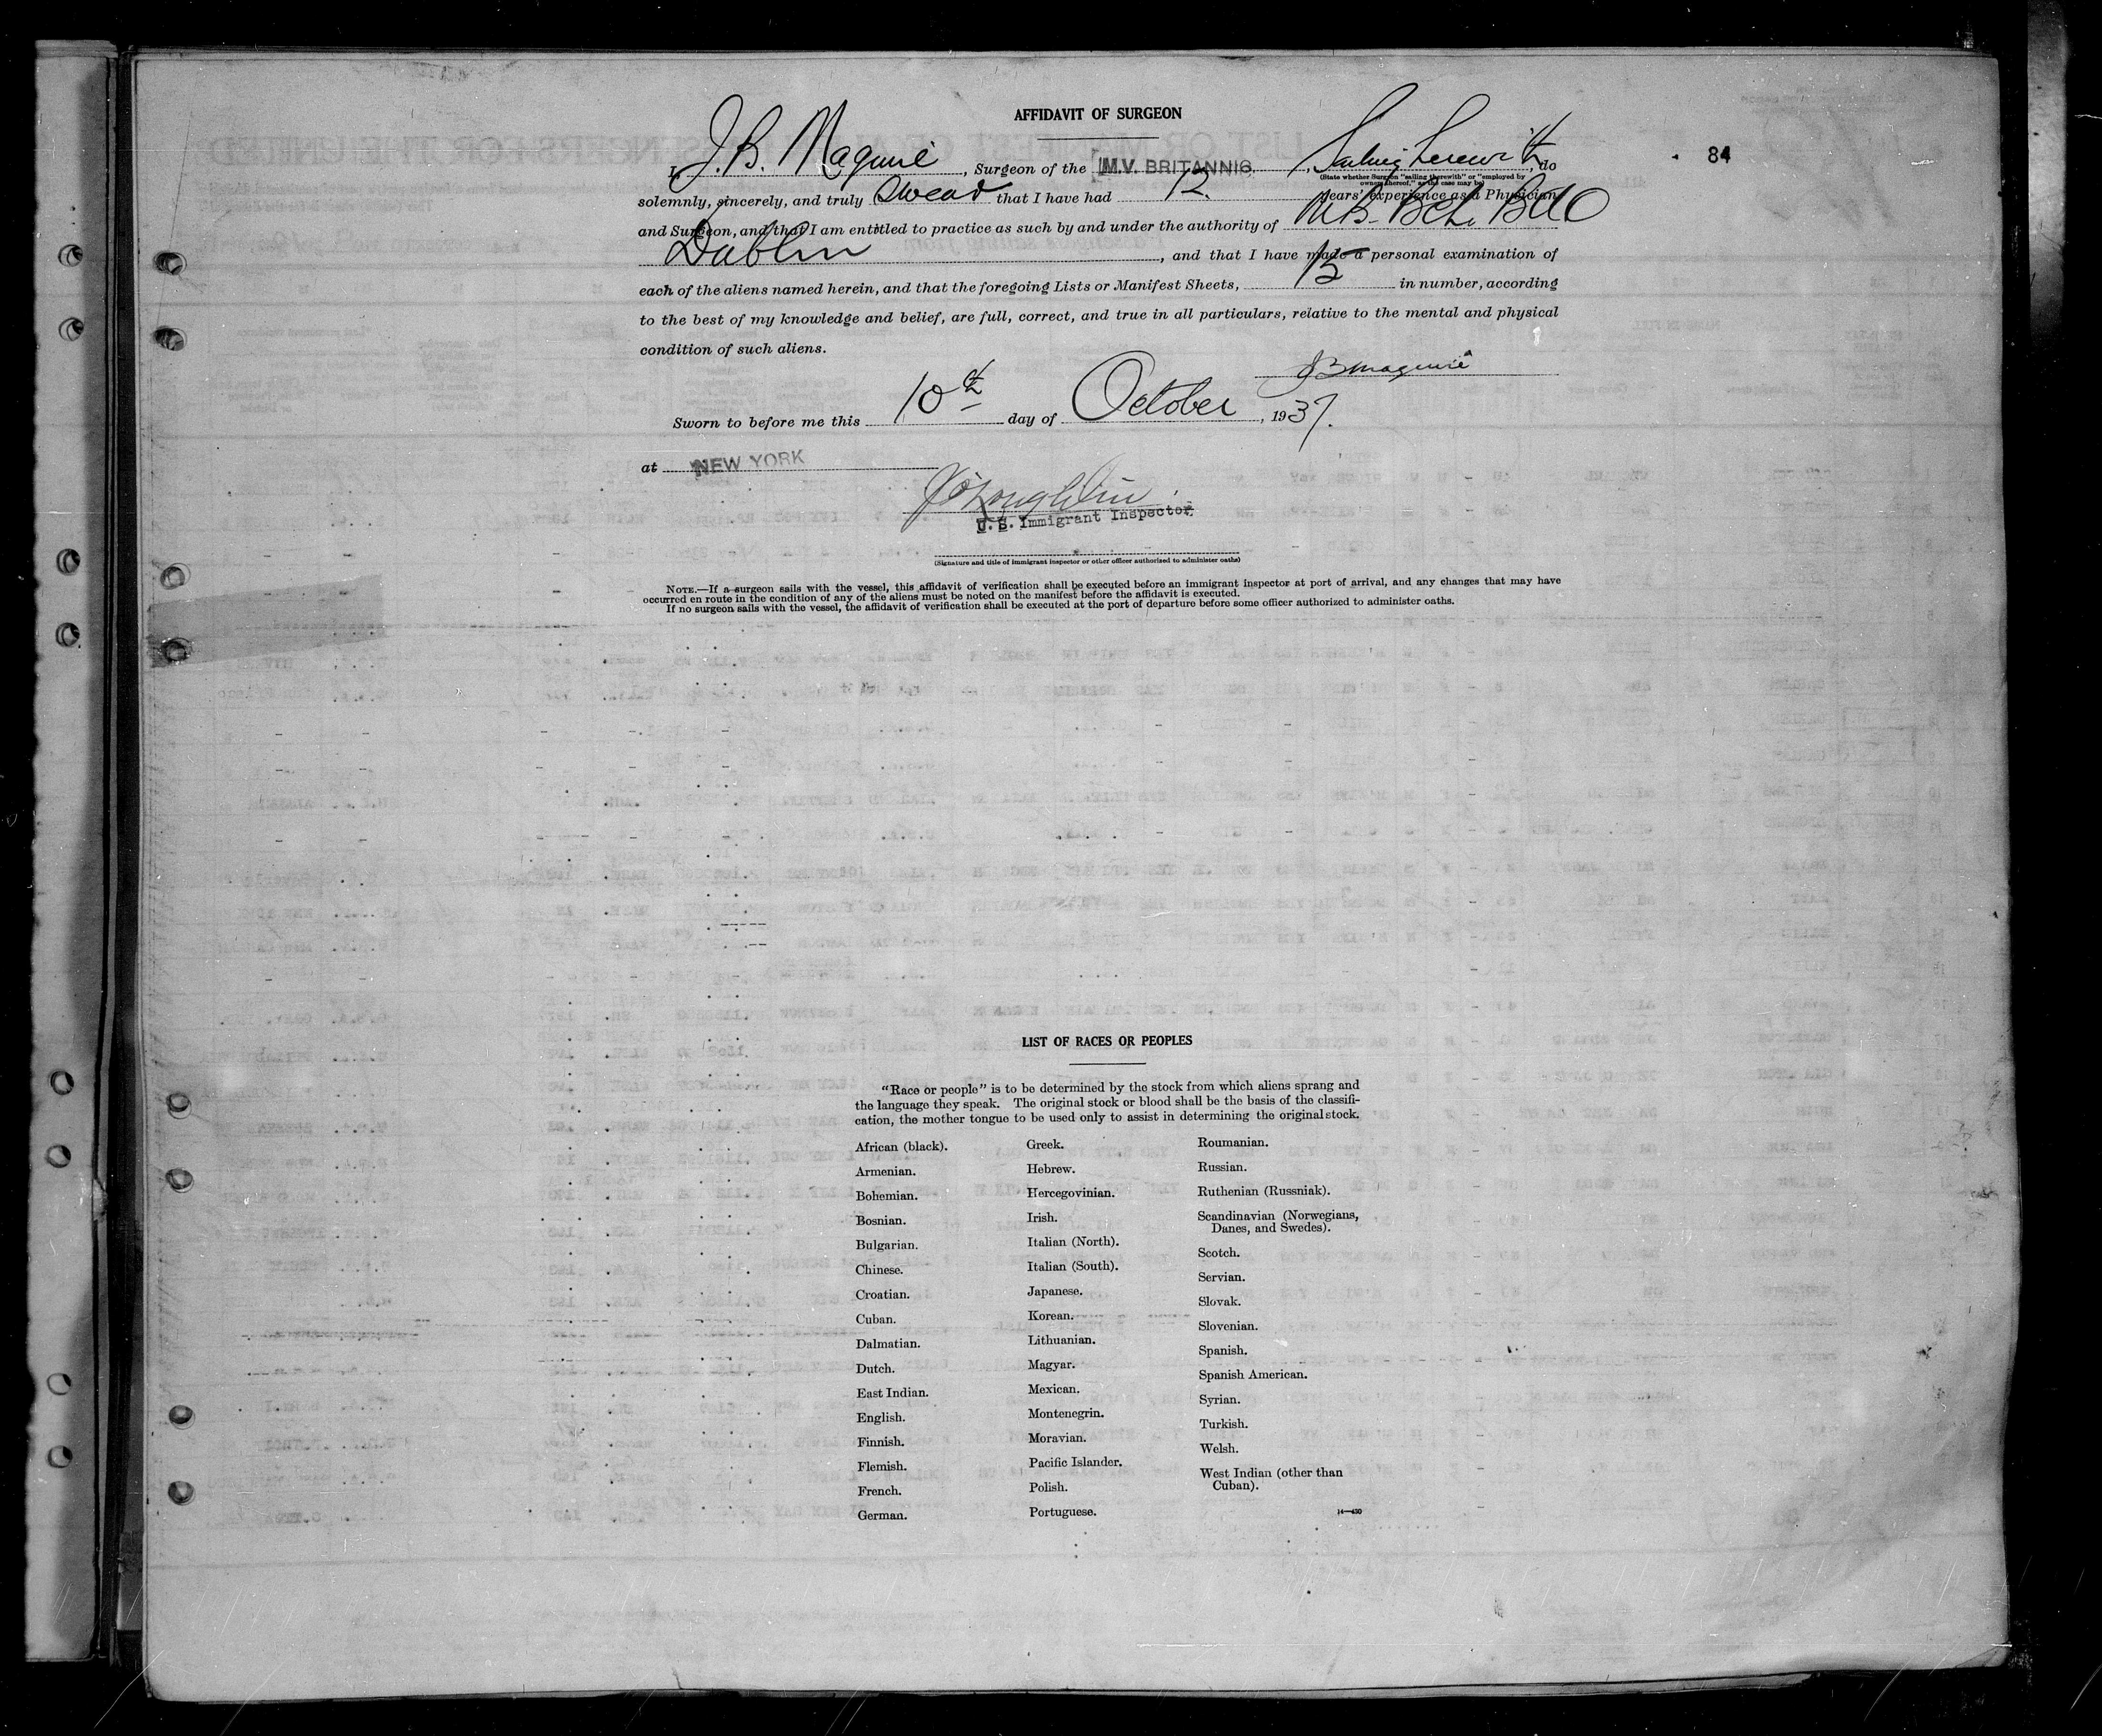 AFFIDAVIT OF SURGEON
84
I, J. B. Maguire, Surgeon of the M.V. BRITANNIC, Sailing therewith, do
(State whether Surgeon "sailing therewith" or "employed by
owners thereof," as the case may be)
solemnly, sincerely, and truly swear that I have had 12. years' experience as a Physician
and Surgeon, and that I am entitled to practice as such by and under the authority of M.B. Bch. BAO
Dublin, and that I have made a personal examination of
each of the aliens named herein, and that the foregoing Lists or Manifest Sheets, 15 in number, according
to the best of my knowledge and belief, are full, correct, and true in all particulars, relative to the mental and physical
condition of such aliens.
JB Maguire
Sworn to before me this 10th day of October, 1937.
at NEW YORK
U. S. Immigrant Inspector.
(Signature and title of immigrant inspector or other officer authorized to administer oaths)
NOTE.—If a surgeon sails with the vessel, this affidavit of verification shall be executed before an immigrant inspector at port of arrival, and any changes that may have
occurred en route in the condition of any of the aliens must be noted on the manifest before the affidavit is executed.
If no surgeon sails with the vessel, the affidavit of verification shall be executed at the port of departure before some officer authorized to administer oaths.
LIST OF RACES OR PEOPLES
"Race or people" is to be determined by the stock from which aliens sprang and
the language they speak. The original stock or blood shall be the basis of the classifi-
cation, the mother tongue to be used only to assist in determining the original stock.
African (black).
Armenian.
Bohemian.
Bosnian.
Bulgarian.
Chinese.
Croatian.
Cuban.
Dalmatian.
Dutch.
East Indian.
English.
Finnish.
Flemish.
French.
German.
Greek.
Hebrew.
Hercegovinian.
Irish.
Italian (North).
Italian (South).
Japanese.
Korean.
Lithuanian.
Magyar.
Mexican.
Montenegrin.
Moravian.
Pacific Islander.
Polish.
Portuguese.
Roumanian.
Russian.
Ruthenian (Russniak).
Scandinavian (Norwegians,
Danes, and Swedes).
Scotch.
Servian.
Slovak.
Slovenian.
Spanish.
Spanish American.
Syrian.
Turkish.
Welsh.
West Indian (other than
Cuban).